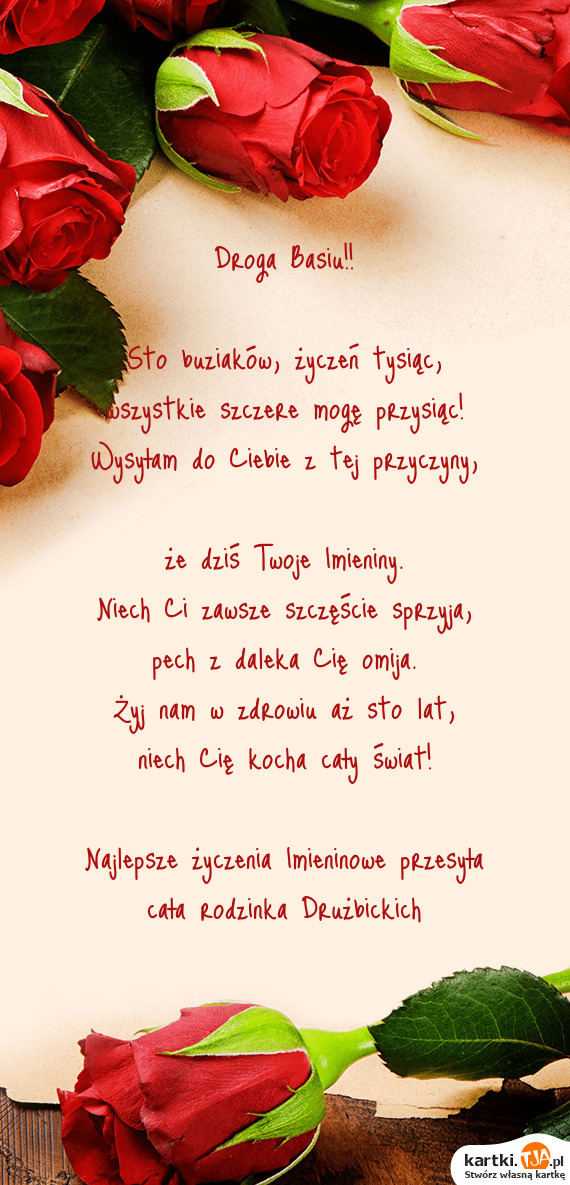 Droga Basiu!!
Sto buziaków, życzeń tysiąc,
wszystkie szczere mogę przysiąc!
Wysyłam do Ciebie z tej przyczyny,
że dziś Twoje Imieniny.
Niech Ci zawsze szczęście sprzyja,
pech z daleka Cię omija.
Żyj nam w zdrowiu aż sto lat,
niech Cię kocha cały świat!
Najlepsze życzenia Imieninowe przesyła
cała rodzinka Drużbickich
kartki.TJA.pl
Stwórz własną kartkę